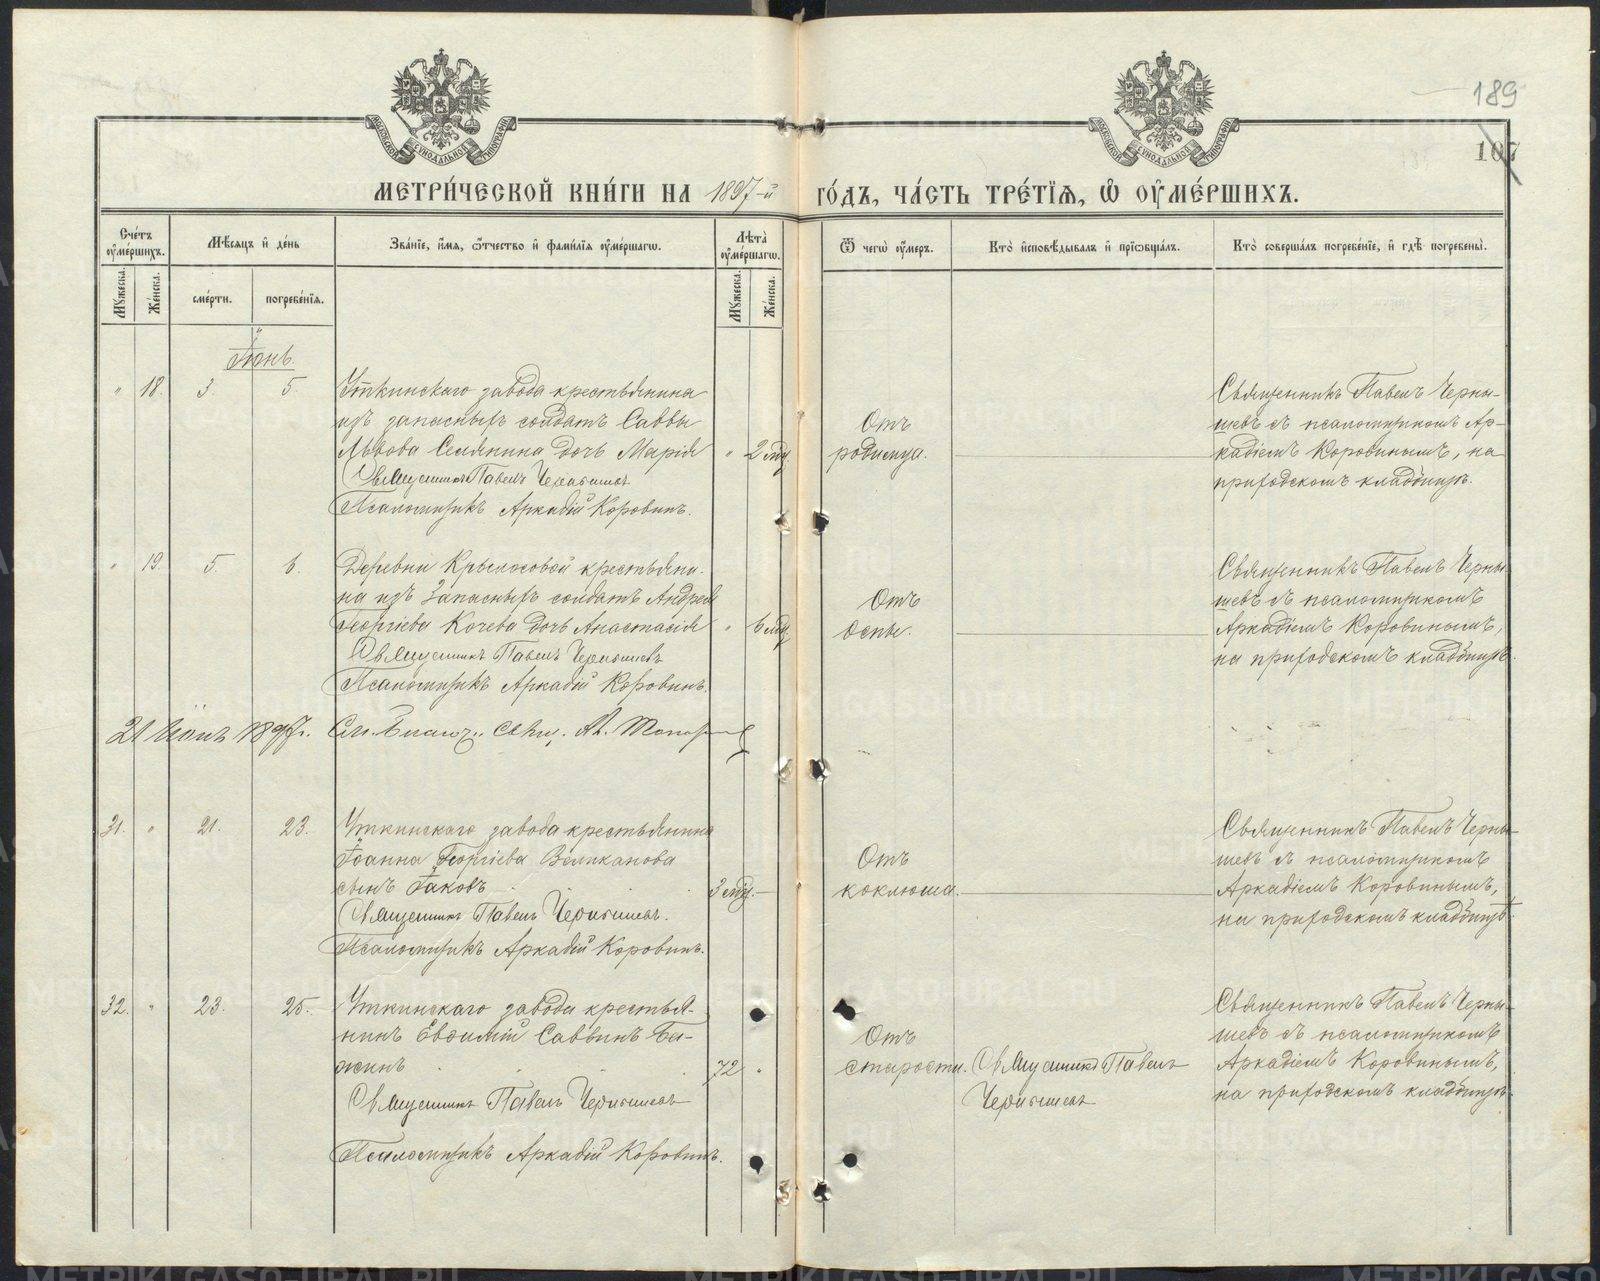 189
107
МОСКОВСКОЙ СѴНОДАЛЬНОЙ ТИПОГРАФІИ
МОСКОВСКОЙ СѴНОДАЛЬНОЙ ТИПОГРАФІИ
МЕТРИ́ЧЕСКОЙ КНИ́ГИ НА 1897-й ГО́ДЪ, ЧА́СТЬ ТРЕ́ТЇѦ, Ѡ҆ ОУ҆МЕ́РШИХЪ.
Сче́тъ оу҆ме́ршихъ.
Мѣ́сяцъ и҆ де́нь
Зва́нїе, и҆́мя, ѻ҆́тчество и҆ фами́лїя оу҆ме́ршагѡ.
Лѣ́та оу҆ме́ршагѡ.
Ѿ чегѡ̀ оу҆́меръ.
Кто̀ и҆сповѣ́дывалъ и҆ прїѡбща́лъ.
Кто̀ соверша́лъ погребе́нїе, и҆ гдѣ̀ погребены̀.
Мꙋ́жеска.
Же́нска.
сме́рти.
погребе́нїя.
Мꙋ́жеска.
Же́нска.
Іюнь.
" 18. 3. 5. Уткинскаго завода крестьянина
изъ запасныхъ солдатъ Саввы
Львова Селянина дочь Марія " 2 мѣс.
Священникъ Павелъ Чернышевъ
Псаломщикъ Аркадій Коровинъ.
Отъ
родимца.
Священникъ Павелъ Черны-
шевъ съ псаломщикомъ Ар-
кадіемъ Коровинымъ, на
приходскомъ кладбищѣ.
" 19. 5. 6. Деревни Крылосовой крестьяни-
на изъ запасныхъ солдатъ Андрея
Георгіева Кочева дочь Анастасія " 6 мѣс.
Священникъ Павелъ Чернышевъ
Псаломщикъ Аркадій Коровинъ.
Отъ
оспы.
Священникъ Павелъ Черны-
шевъ съ псаломщикомъ
Аркадіемъ Коровинымъ,
на приходскомъ кладбищѣ.
21 Іюнь 1897 г.
31. " 21. 23. Уткинскаго завода крестьянина
Іоанна Георгіева Великанова
сынъ Іаковъ 3 мѣс. —
Священникъ Павелъ Чернышевъ.
Псаломщикъ Аркадій Коровинъ.
Отъ
коклюша.
Священникъ Павелъ Черны-
шевъ съ псаломщикомъ
Аркадіемъ Коровинымъ,
на приходскомъ кладбищѣ.
32. " 23. 25. Уткинскаго завода крестья-
нинъ Евѳимій Саввинъ Ба-
жинъ 72 "
Священникъ Павелъ Чернышевъ
Псаломщикъ Аркадій Коровинъ.
Отъ
старости.
Священникъ Павелъ
Чернышевъ
Священникъ Павелъ Черны-
шевъ съ псаломщикомъ
Аркадіемъ Коровинымъ,
на приходскомъ кладбищѣ.